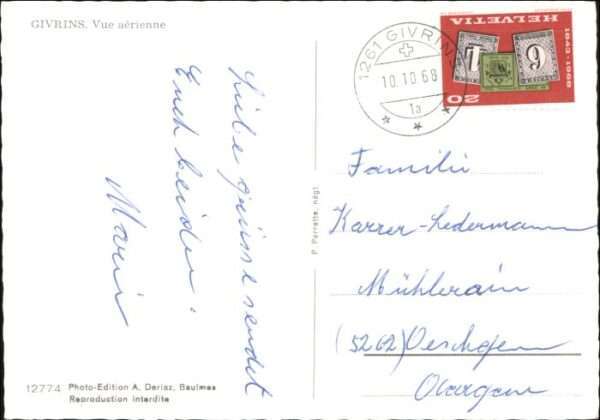 GIVRINS. Vue aérienne
Liebe grüsse sendet
Euch beiden.
Marii
12774 Photo-Edition A. Deriaz, Baulmes
Reproduction interdite
P. Perrette, négt.
1261 GIVRINS
10.10.68
1a
HELVETIA
1843-1968
20
Familie
Karrer-Ledermann
Mühlerain
(5262) Oeschgen